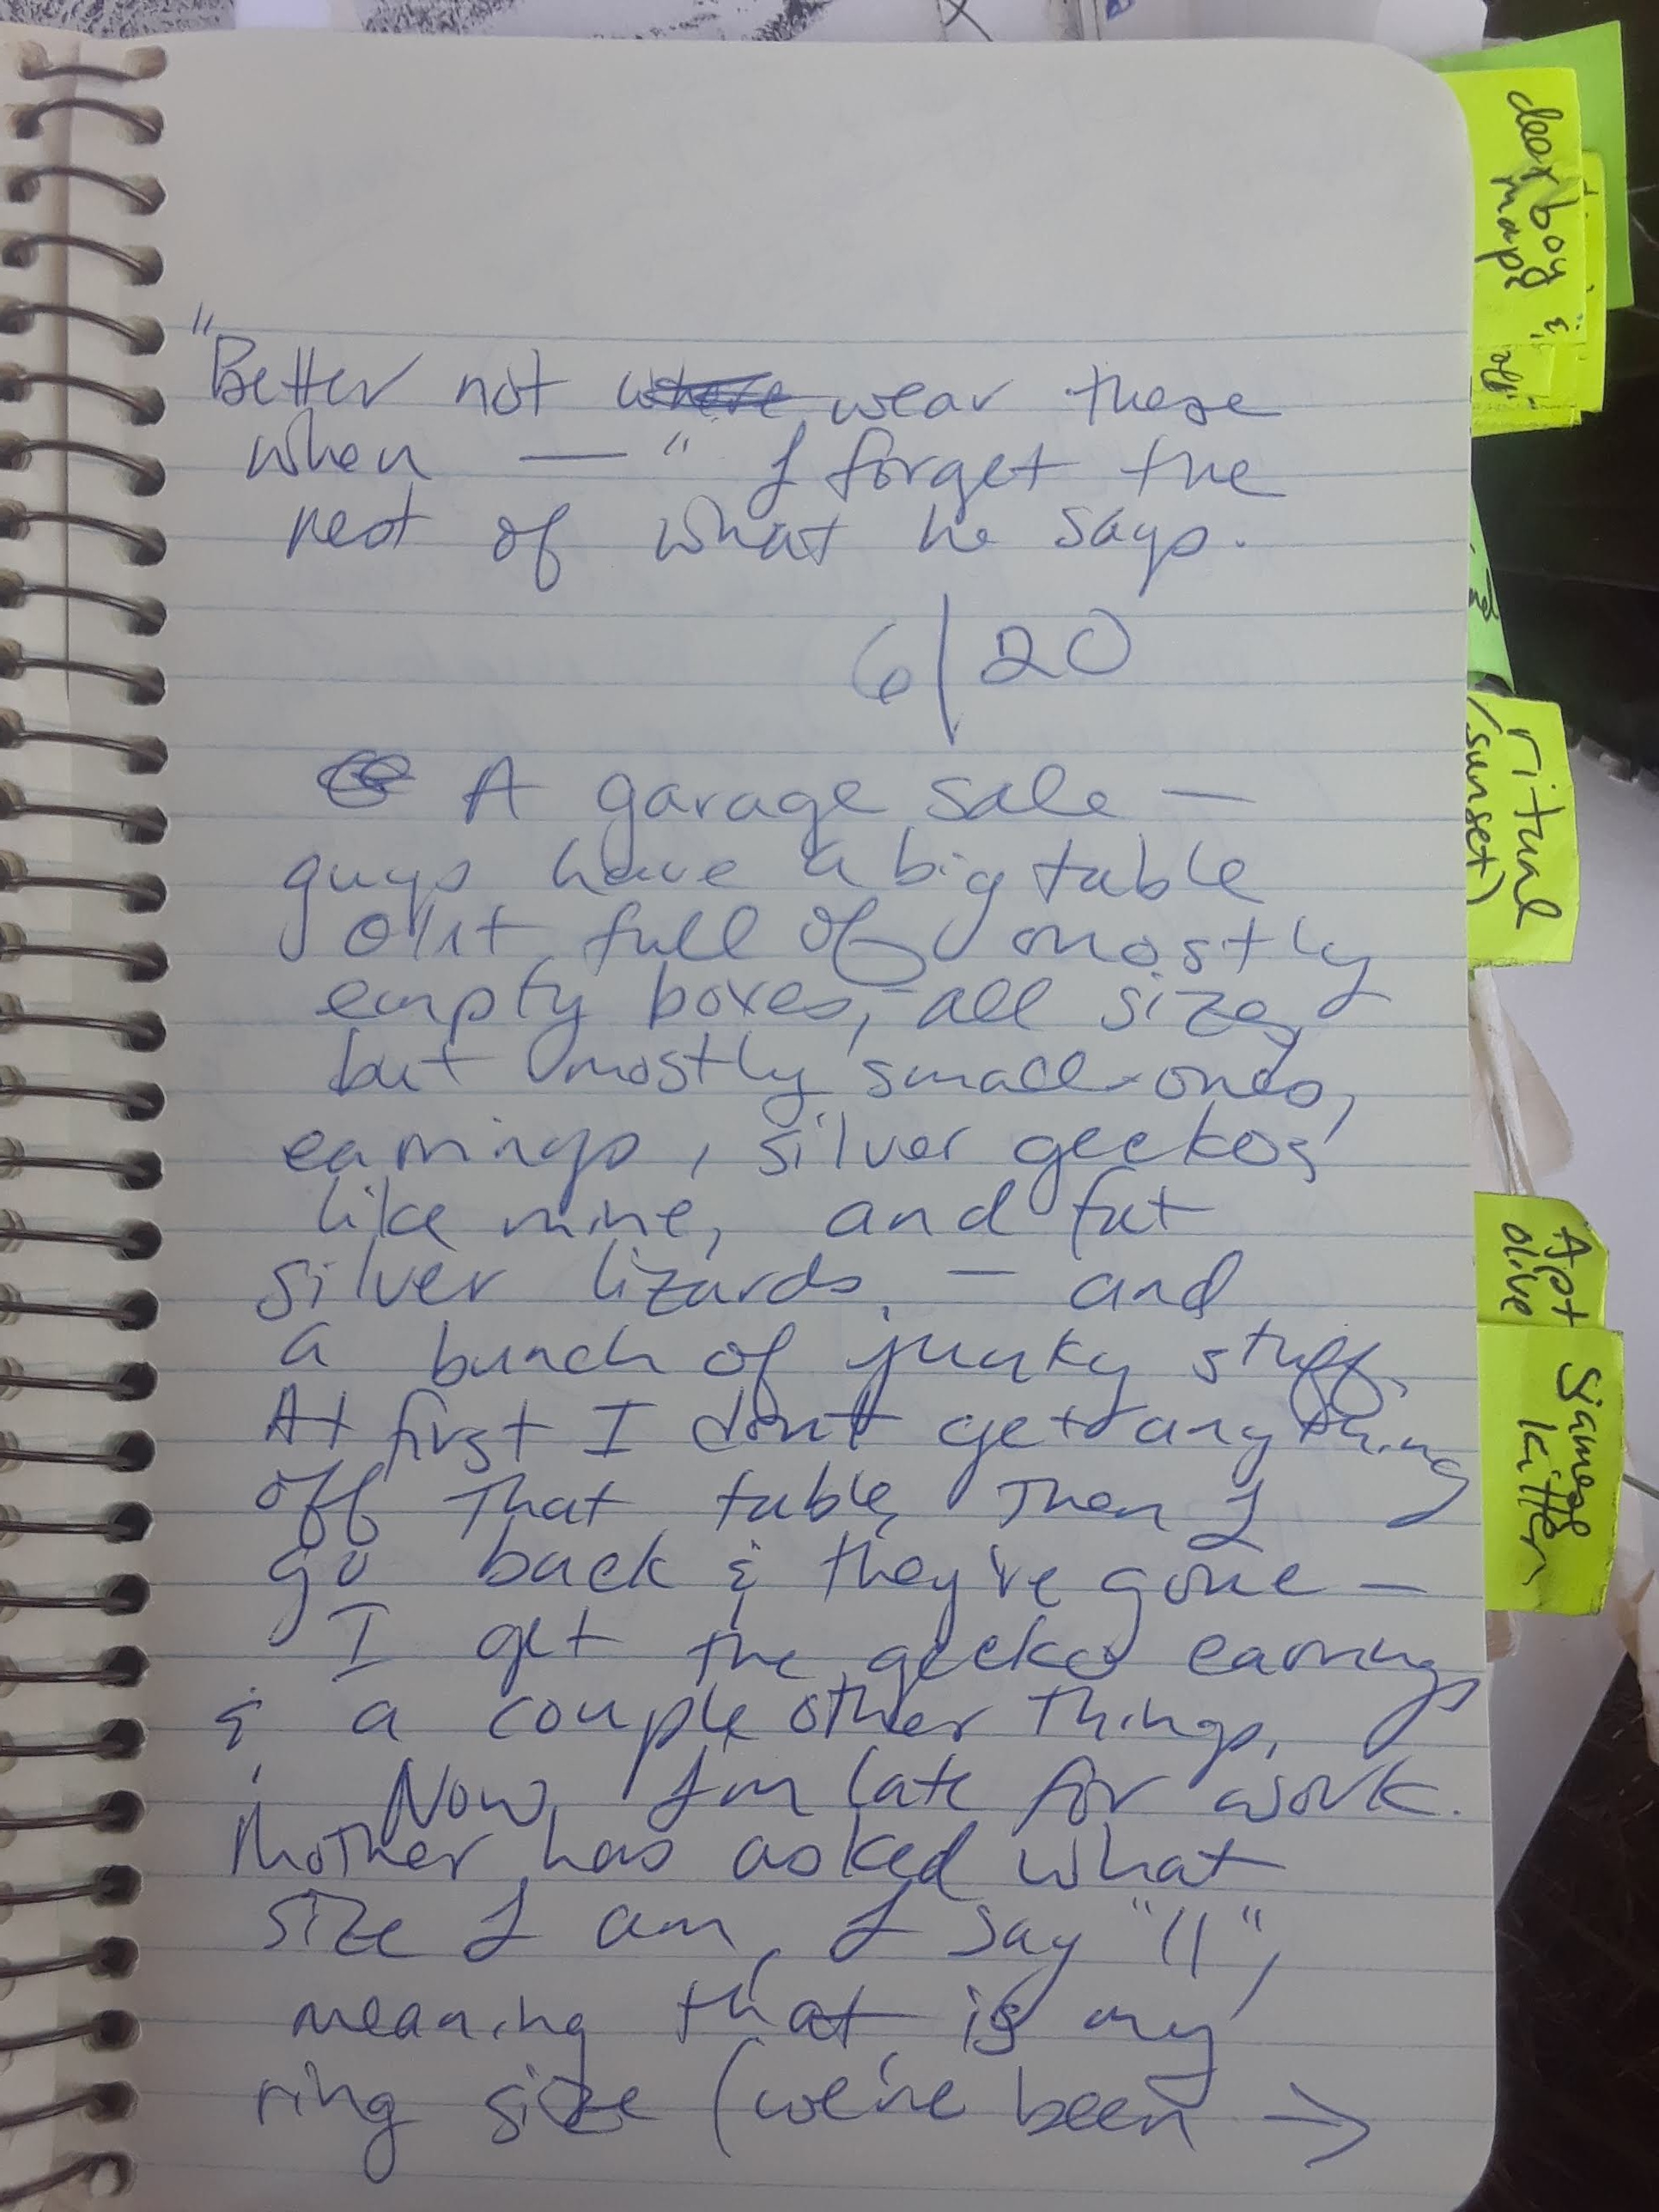 "Better not where wear these
when — " I forget the
rest of what he says.
6/20
A garage sale —
guys have a big table
out full of mostly
empty boxes, all sizes,
but mostly small ones,
earrings, silver geckos
like mine, and fat
silver lizards, — and
a bunch of junky stuff.
At first I don't get anything
off that table, Then I
go back & they're gone —
I get the gecko earrings
& a couple other things.
Now I'm late for work.
Mother has asked what
size I am, I say "11",
meaning that is my
ring size (we've been →
deer boy &
maps
ritual
(sunset)
Apt
olive
Siamese
kitten